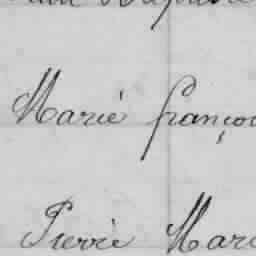 Marie françoi
Pierre Mari